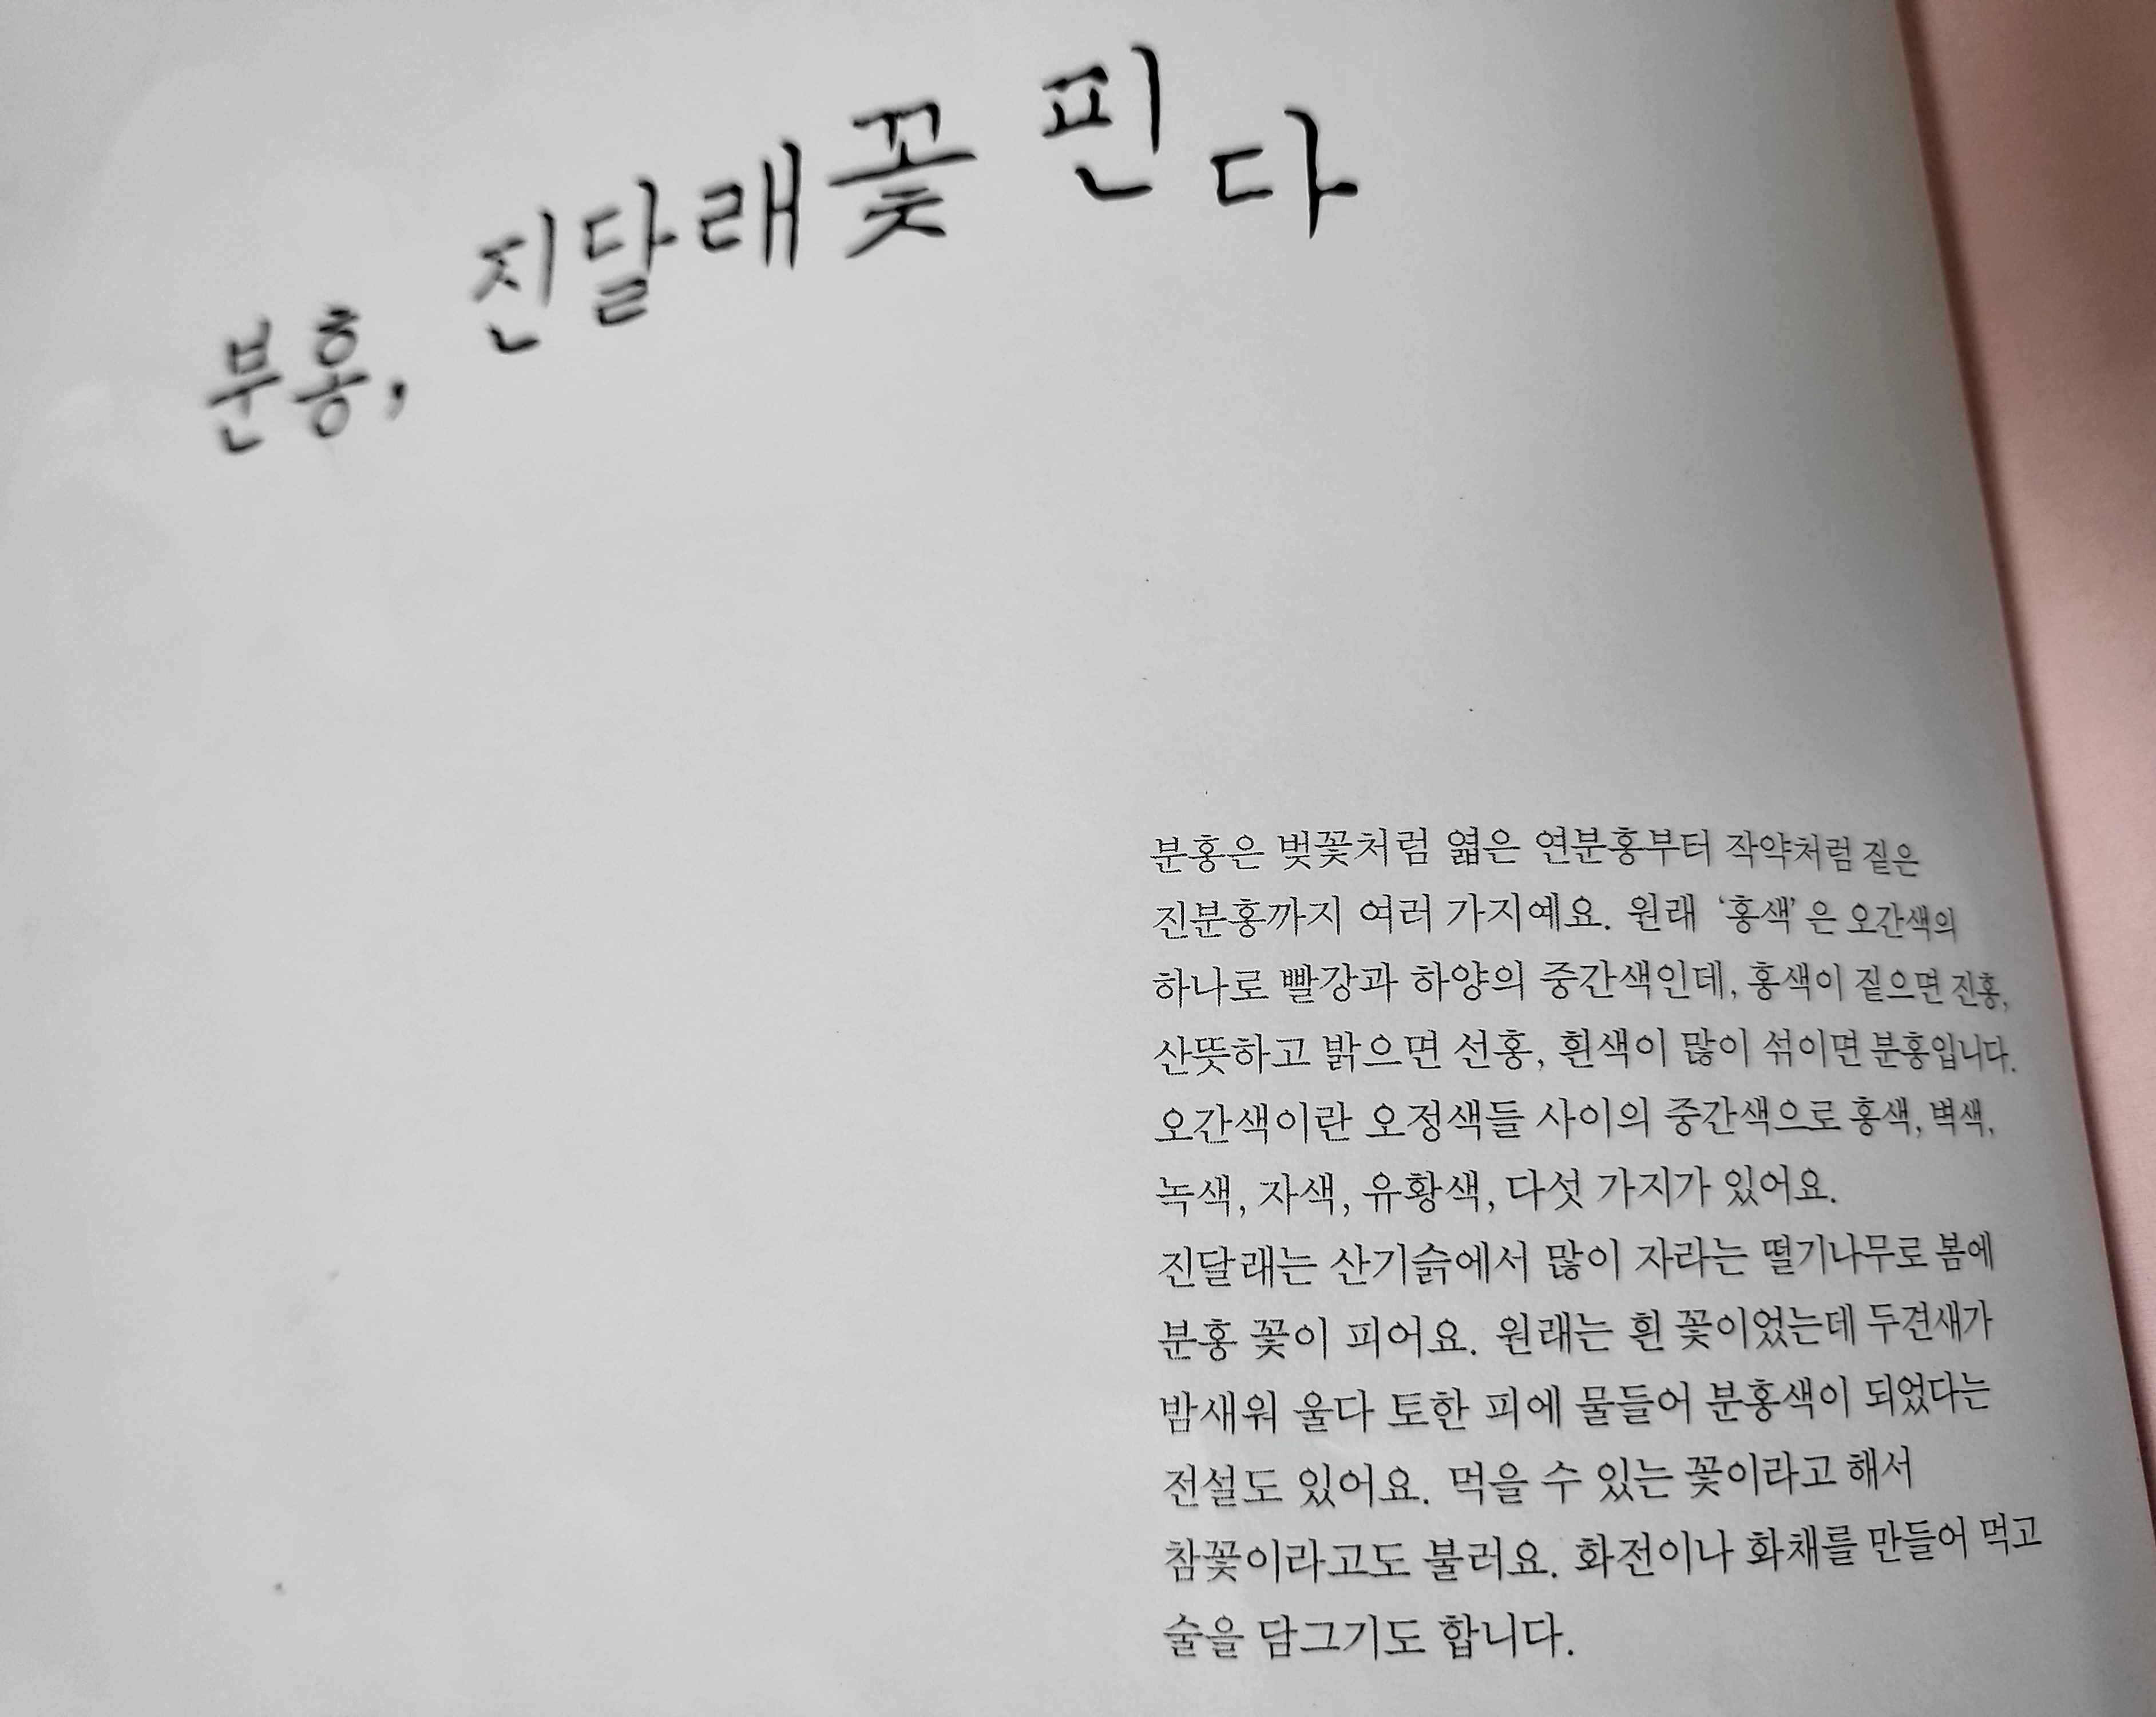 분홍, 진달래꽃 핀다
분홍은 벚꽃처럼 엷은 연분홍부터 작약처럼 짙은
진분홍까지 여러 가지예요. 원래 ‘홍색’은 오간색의
하나로 빨강과 하양의 중간색인데, 홍색이 짙으면 진홍,
산뜻하고 밝으면 선홍, 흰색이 많이 섞이면 분홍입니다.
오간색이란 오정색들 사이의 중간색으로 홍색, 벽색,
녹색, 자색, 유황색, 다섯 가지가 있어요.
진달래는 산기슭에서 많이 자라는 떨기나무로 봄에
분홍 꽃이 피어요. 원래는 흰 꽃이었는데 두견새가
밤새워 울다 토한 피에 물들어 분홍색이 되었다는
전설도 있어요. 먹을 수 있는 꽃이라고 해서
참꽃이라고도 불러요. 화전이나 화채를 만들어 먹고
술을 담그기도 합니다.